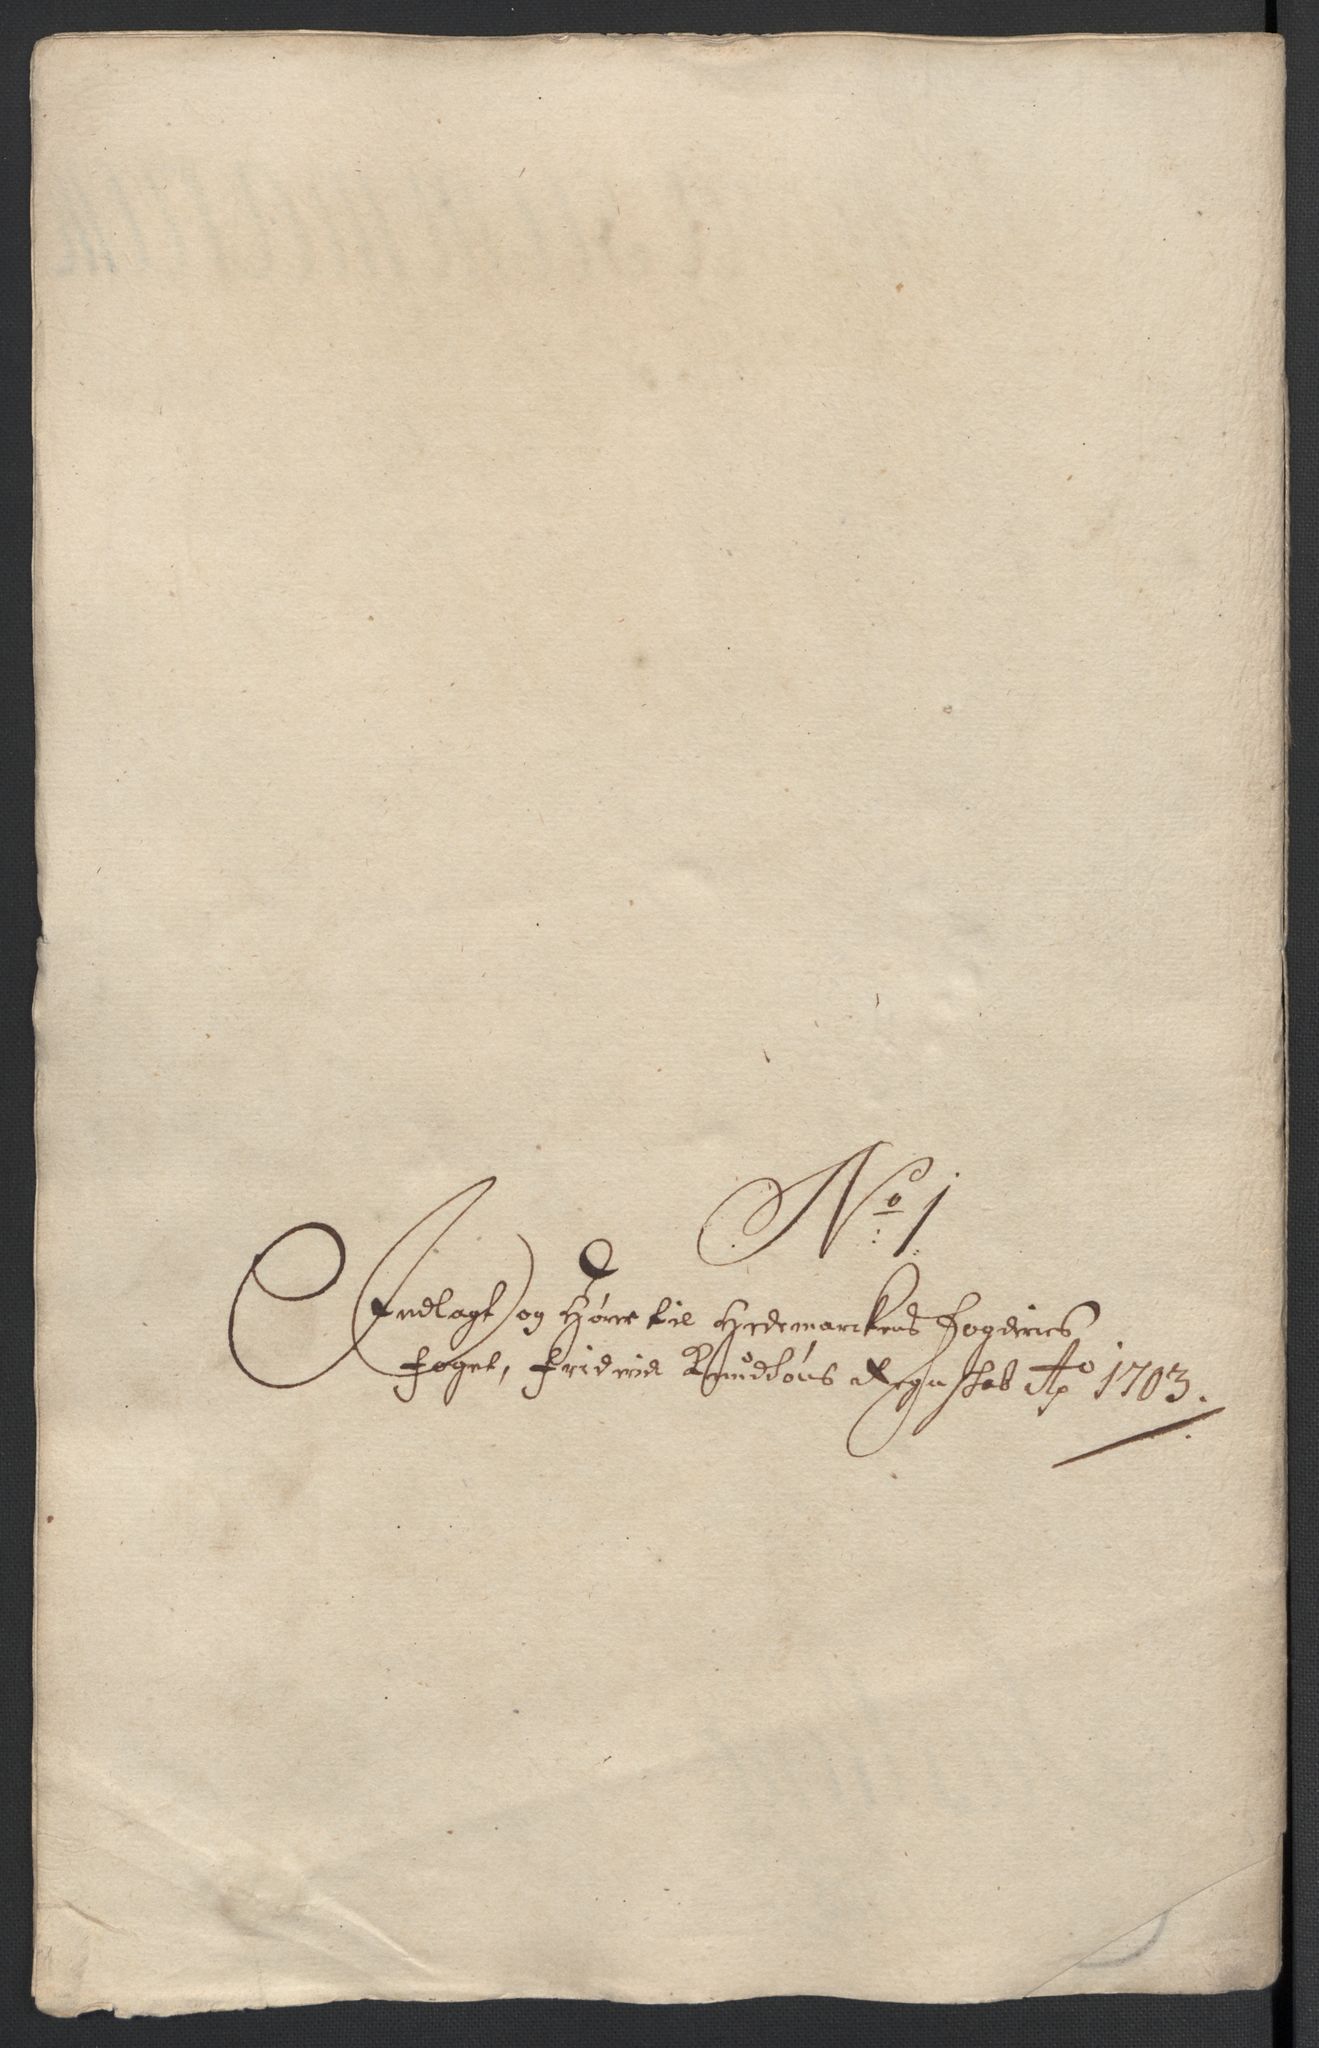 No 1
Indlagt og Hører til Hedemarckens Fogderies
foget, Friderich Knudsøns Regnskab Ao 1703.